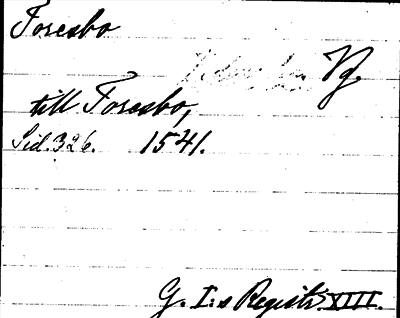 Foresbo
Vg.
till Foresbo,
Sid. 326. 1541.
G. I:s Registr. XIII.